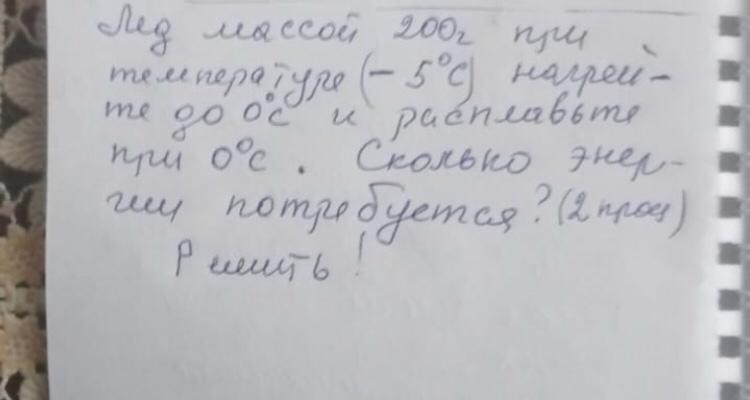 Лед массой 200г при
температуре (- 5°С) нагрей-
те до 0°С и расплавьте
при 0°С. Сколько энер-
гии потребуется? (2 проц)
Решить!